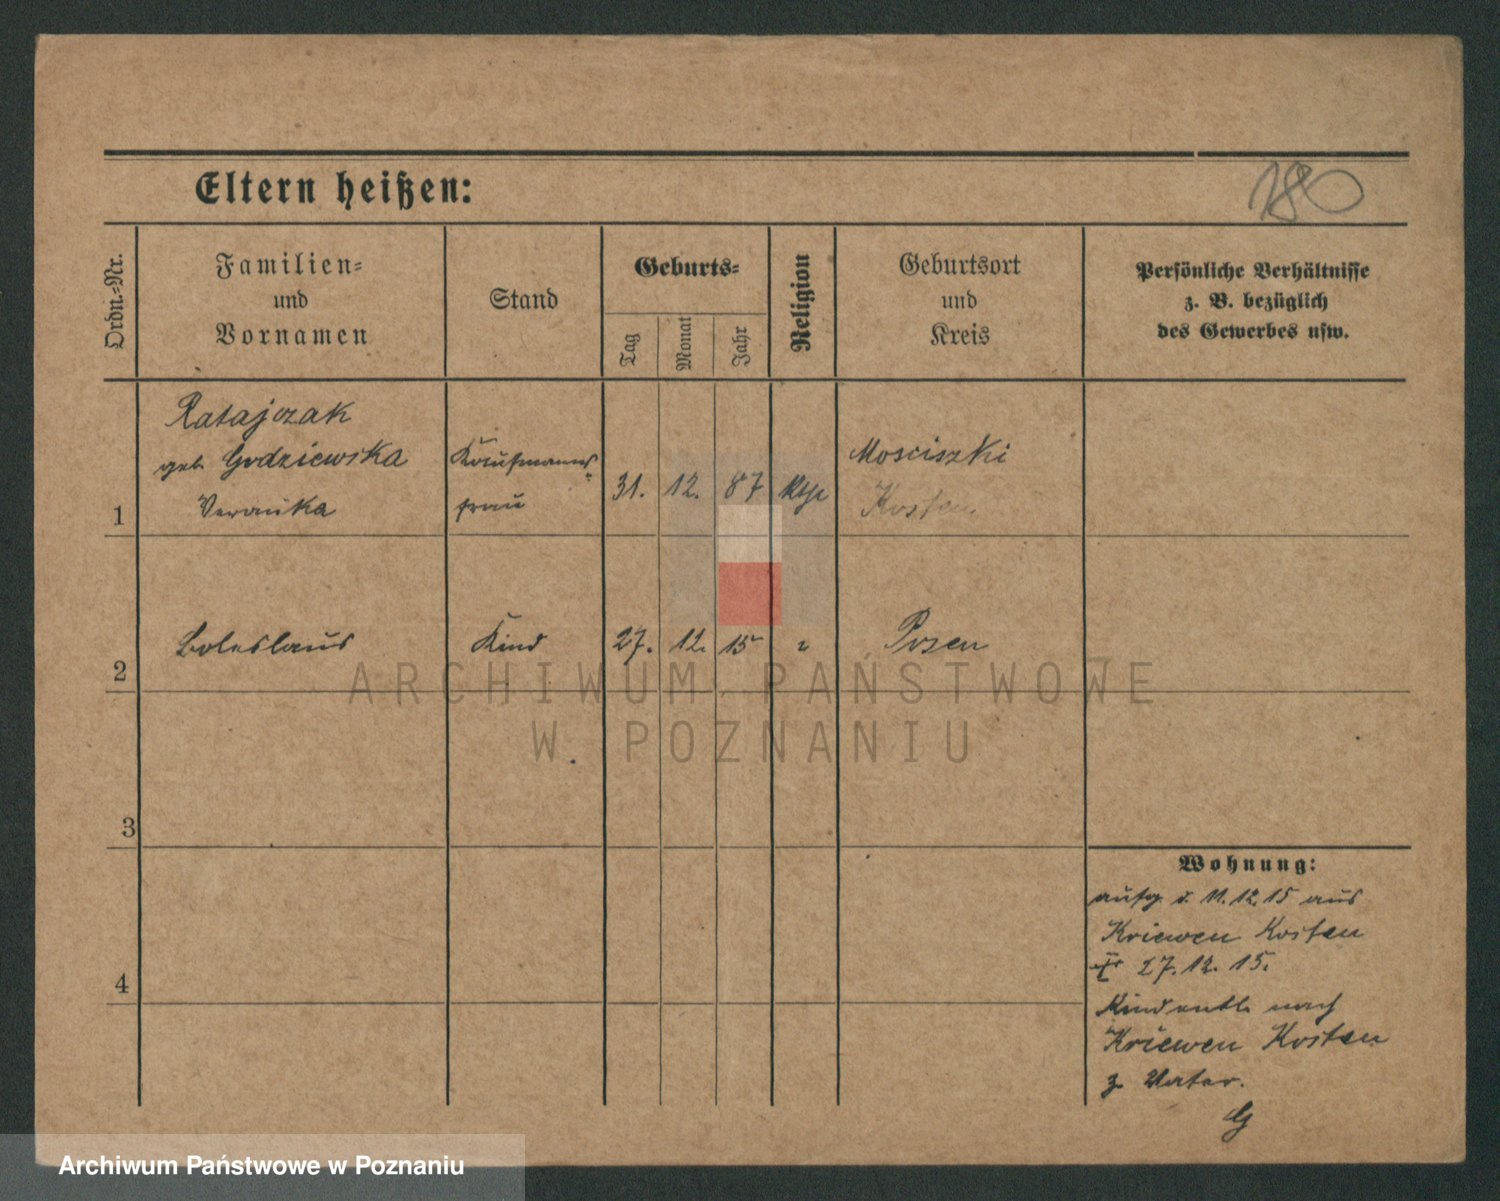 Eltern heißen:
180
Ordn.-Nr.
Familien-
und
Vornamen
Stand
Geburts-
Tag
Monat
Jahr
Religion
Geburtsort
und
Kreis
Persönliche Verhältnisse
z. B. bezüglich
des Gewerbes usw.
Ratajczak
geb. Godziewska
Veronika
Kaufmanns-
frau
1
31. 12. 87
Mosciszki
Kosten
2 Boleslaus Kind 27. 12. 15 " Posen
ARCHIWUM PAŃSTWOWE
W POZNANIU
3
4
Wohnung:
aufg. d. 11.12.15 aus
Kriewen Kosten
27.12.15.
Kind entl. nach
Kriewen Kosten
z. Vater.
Archiwum Państwowe w Poznaniu